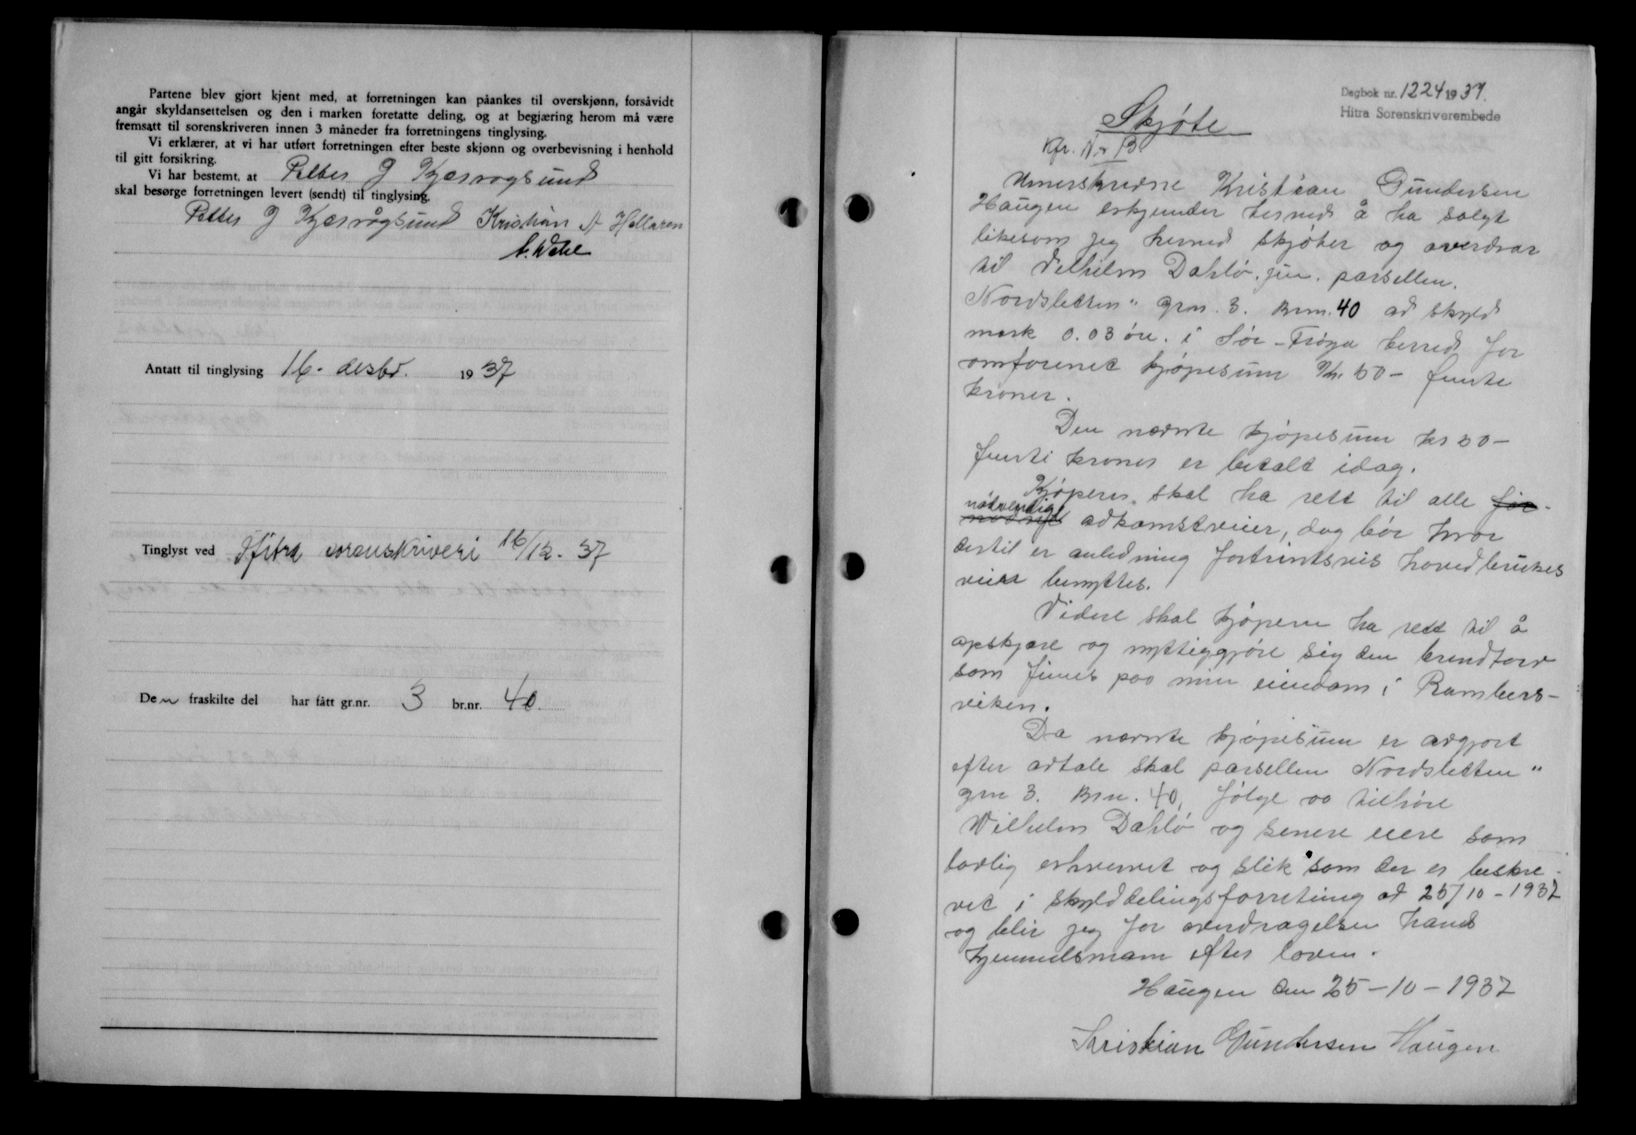 Partene blev gjort kjent med, at forretningen kan påankes til overskjønn, forsåvidt
angår skyldansettelsen og den i marken foretatte deling, og at begjæring herom må være
fremsatt til sorenskriveren innen 3 måneder fra forretningens tinglysing.
Vi erklærer, at vi har utført forretningen efter beste skjønn og overbevisning i henhold
til gitt forsikring.
Vi har bestemt, at Petter J Kjærvågsund
skal besørge forretningen levert (sendt) til tinglysing.
Petter J Kjærvågsund Kristian A Hallaren
Antatt til tinglysing 16. desbr. 1937
Tinglyst ved Hitra sorenskriveri 16/12-37
Den fraskilte del har fått gr.nr. 3 br.nr. 40.
Dagbok nr. 1224 1937.
Hitra Sorenskriverembede
Skjøte
Kristian Gundersen
Haugen erkjender herved å ha solgt
likesom jeg herved skjøter og overdrar
til Vilhelm Dahlø jun. parsellen
Nordsletten" grn. 3. Brn. 40 av skyld
mark 0.03 øre i Sør-Frøya herred for
omforenet kjøpesum Kr. 50- femti
kroner.
Den nevnte kjøpesum kr 50-
femti kroner er betalt idag.
Kjøperen skal ha rett til alle
nødvendige adkomstveier, dog bør hvor
dertil er anledning fortrinsvis hovedbrukes
veier benyttes.
Videre skal kjøperen ha rett til å
opskjære og nyttiggjøre sig den brendtorv
som finnes paa min eiendom i Rambers-
viken.
Da nevnte kjøpesum er avgjort
efter avtale skal parsellen Nordsletten"
grn 3. Brn. 40, følge oo tilhøre
Vilhelm Dahlø og senere eiere som
lovlig erhvervet og slik som den er beskre-
vet i skylddelingsforretning av 25/10-1937
og blir jeg for overdragelsen hans
hjemmelsmann efter loven.
Haugen den 25-10-1937
Kristian Gundersen Haugen